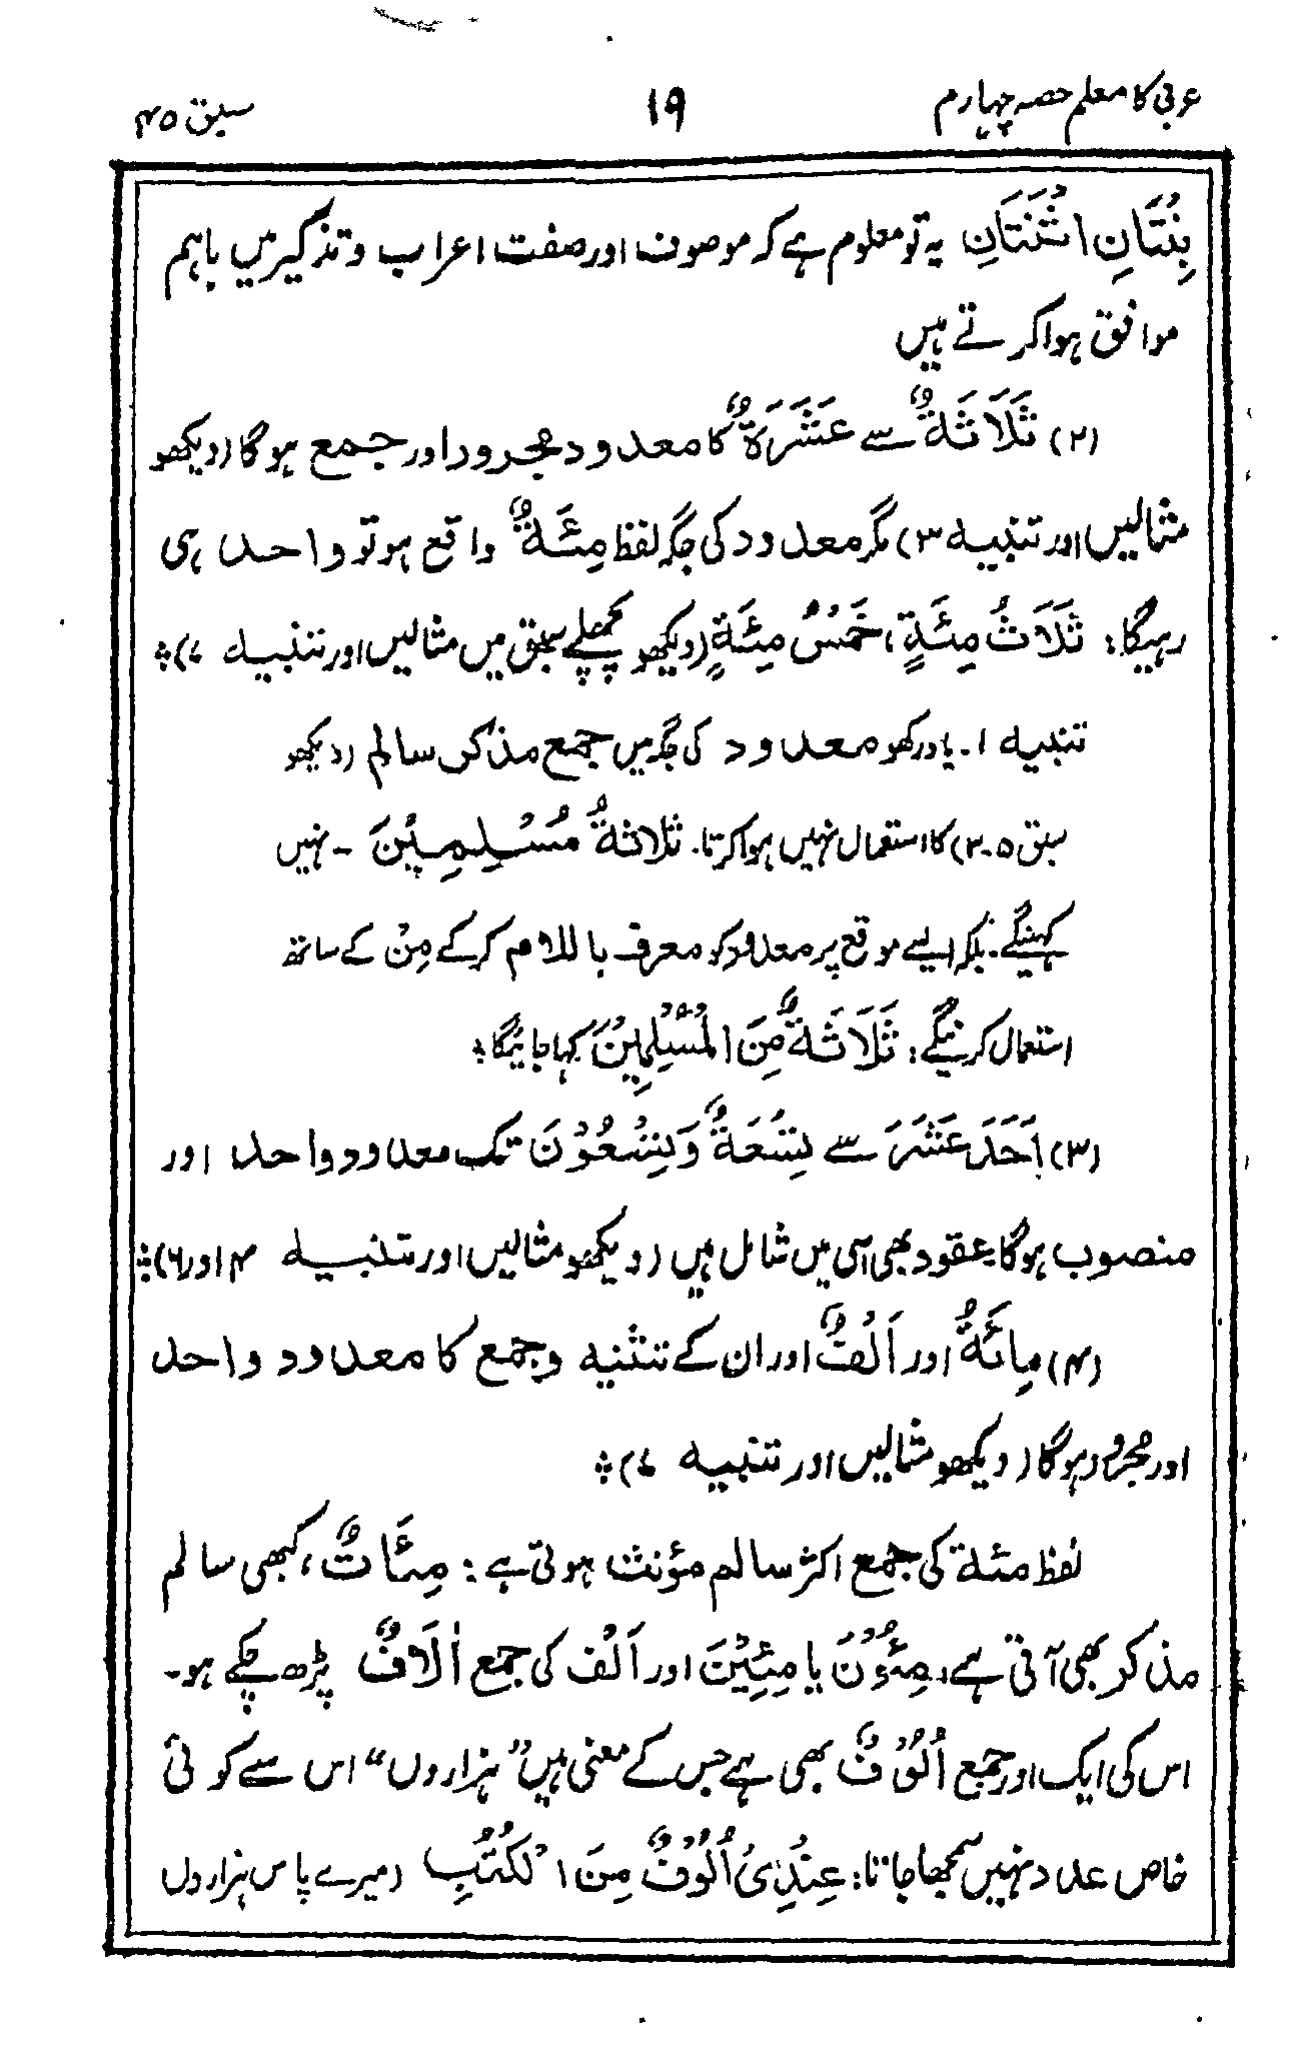 عربی کا معلم حصہ چہارم ۱۹ سبق ۴۵
بِنْتَانِ اثْنَتَانِ یہ تو معلوم ہے کہ موصوف اور صفت اعراب و تذکیر میں باہم
موافق ہوا کرتے ہیں
(۲) ثَلَاثَةٌ سے عَشَرَةٌ کا معدود مجرور اور جمع ہوگا (دیکھو
مثالیں اور تنبیہ ۳) مگر معدود کی جگہ لفظ مِئَةٌ واقع ہو تو واحد ہی
رہیگا: ثَلَاثُ مِئَةٍ، خَمْسُ مِئَةٍ (دیکھو پچھلے سبق میں مثالیں اور تنبیہ ۷)
تنبیہ ۱۔ یاد رکھو معدود کی جگہ میں جمع مذکر سالم (دیکھو
سبق ۵۔۳) کا استعمال نہیں ہوا کرتا۔ ثلاثةٌ مُسْلِمِیْنَ ۔ نہیں
کہینگے۔ بلکہ ایسے موقع پر معدود کو معرف باللام کرکے مِنْ کے ساتھ
استعمال کرینگے: ثَلَاثَةٌ مِنَ الْمُسْلِمِیْنَ کہا جائیگا
(۳) اَحَدَ عَشَرَ سے تِسْعَةٌ وَتِسْعُوْنَ تک معدود واحد اور
منصوب ہوگا۔ عقود بھی اسی میں شامل ہیں (دیکھو مثالیں اور تنبیہ ۴ اور ۶)
(۴) مِائَةٌ اور اَلْفٌ اور ان کے تثنیہ وجمع کا معدود واحد
اور مجرور ہوگا (دیکھو مثالیں اور تنبیہ ۷)
لفظ مئة کی جمع اکثر سالم مؤنث ہوتی ہے: مِئَاتٌ، کبھی سالم
مذکر بھی آتی ہے، مِئُوْنَ یا مِئِیْنَ اور اَلْف کی جمع اٰلَافٌ پڑھ چکے ہو۔
اس کی ایک اور جمع اُلُوْفٌ بھی ہے جس کے معنی ہیں ”ہزاروں“ اس سے کوئی
خاص عدد نہیں سمجھا جاتا: عِنْدِیْ اُلُوْفٌ مِنَ الْکُتُبِ (میرے پاس ہزاروں